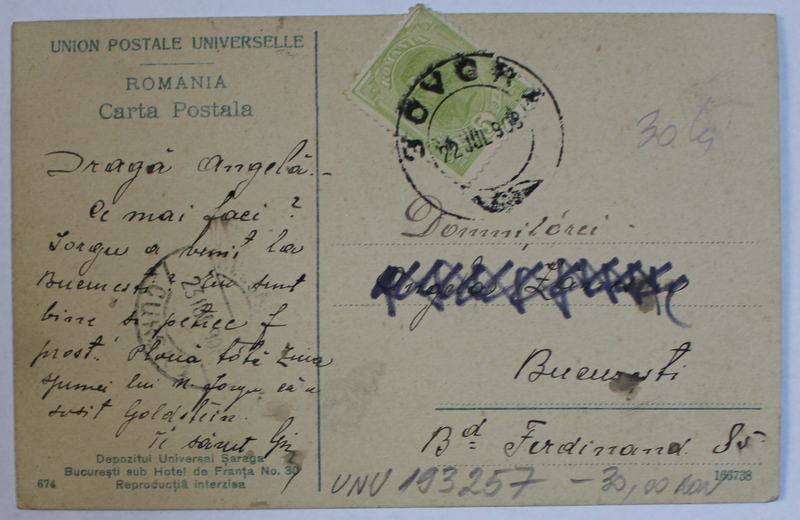 UNION POSTALE UNIVERSELLE
ROMANIA
Carta Postala
Dragă Angelă.-
Ce mai faci?
Iorgu a venit la
Bucuresti? Eu sunt
bine si petrec f
prost. Plouă tótă ziua
spunei lui Iorgu că a
sosit Goldstein.
Te sărut
Depozitul Universal Șaraga
București sub Hotel de Franța No. 30
Reproducția interzisa
674
ROMANIA
GOVORA
22 JUL 908
30 lei
Domnișórei
Angela
București
Bd Ferdinand 85
166738
VNU 193257 - 30,00 RON